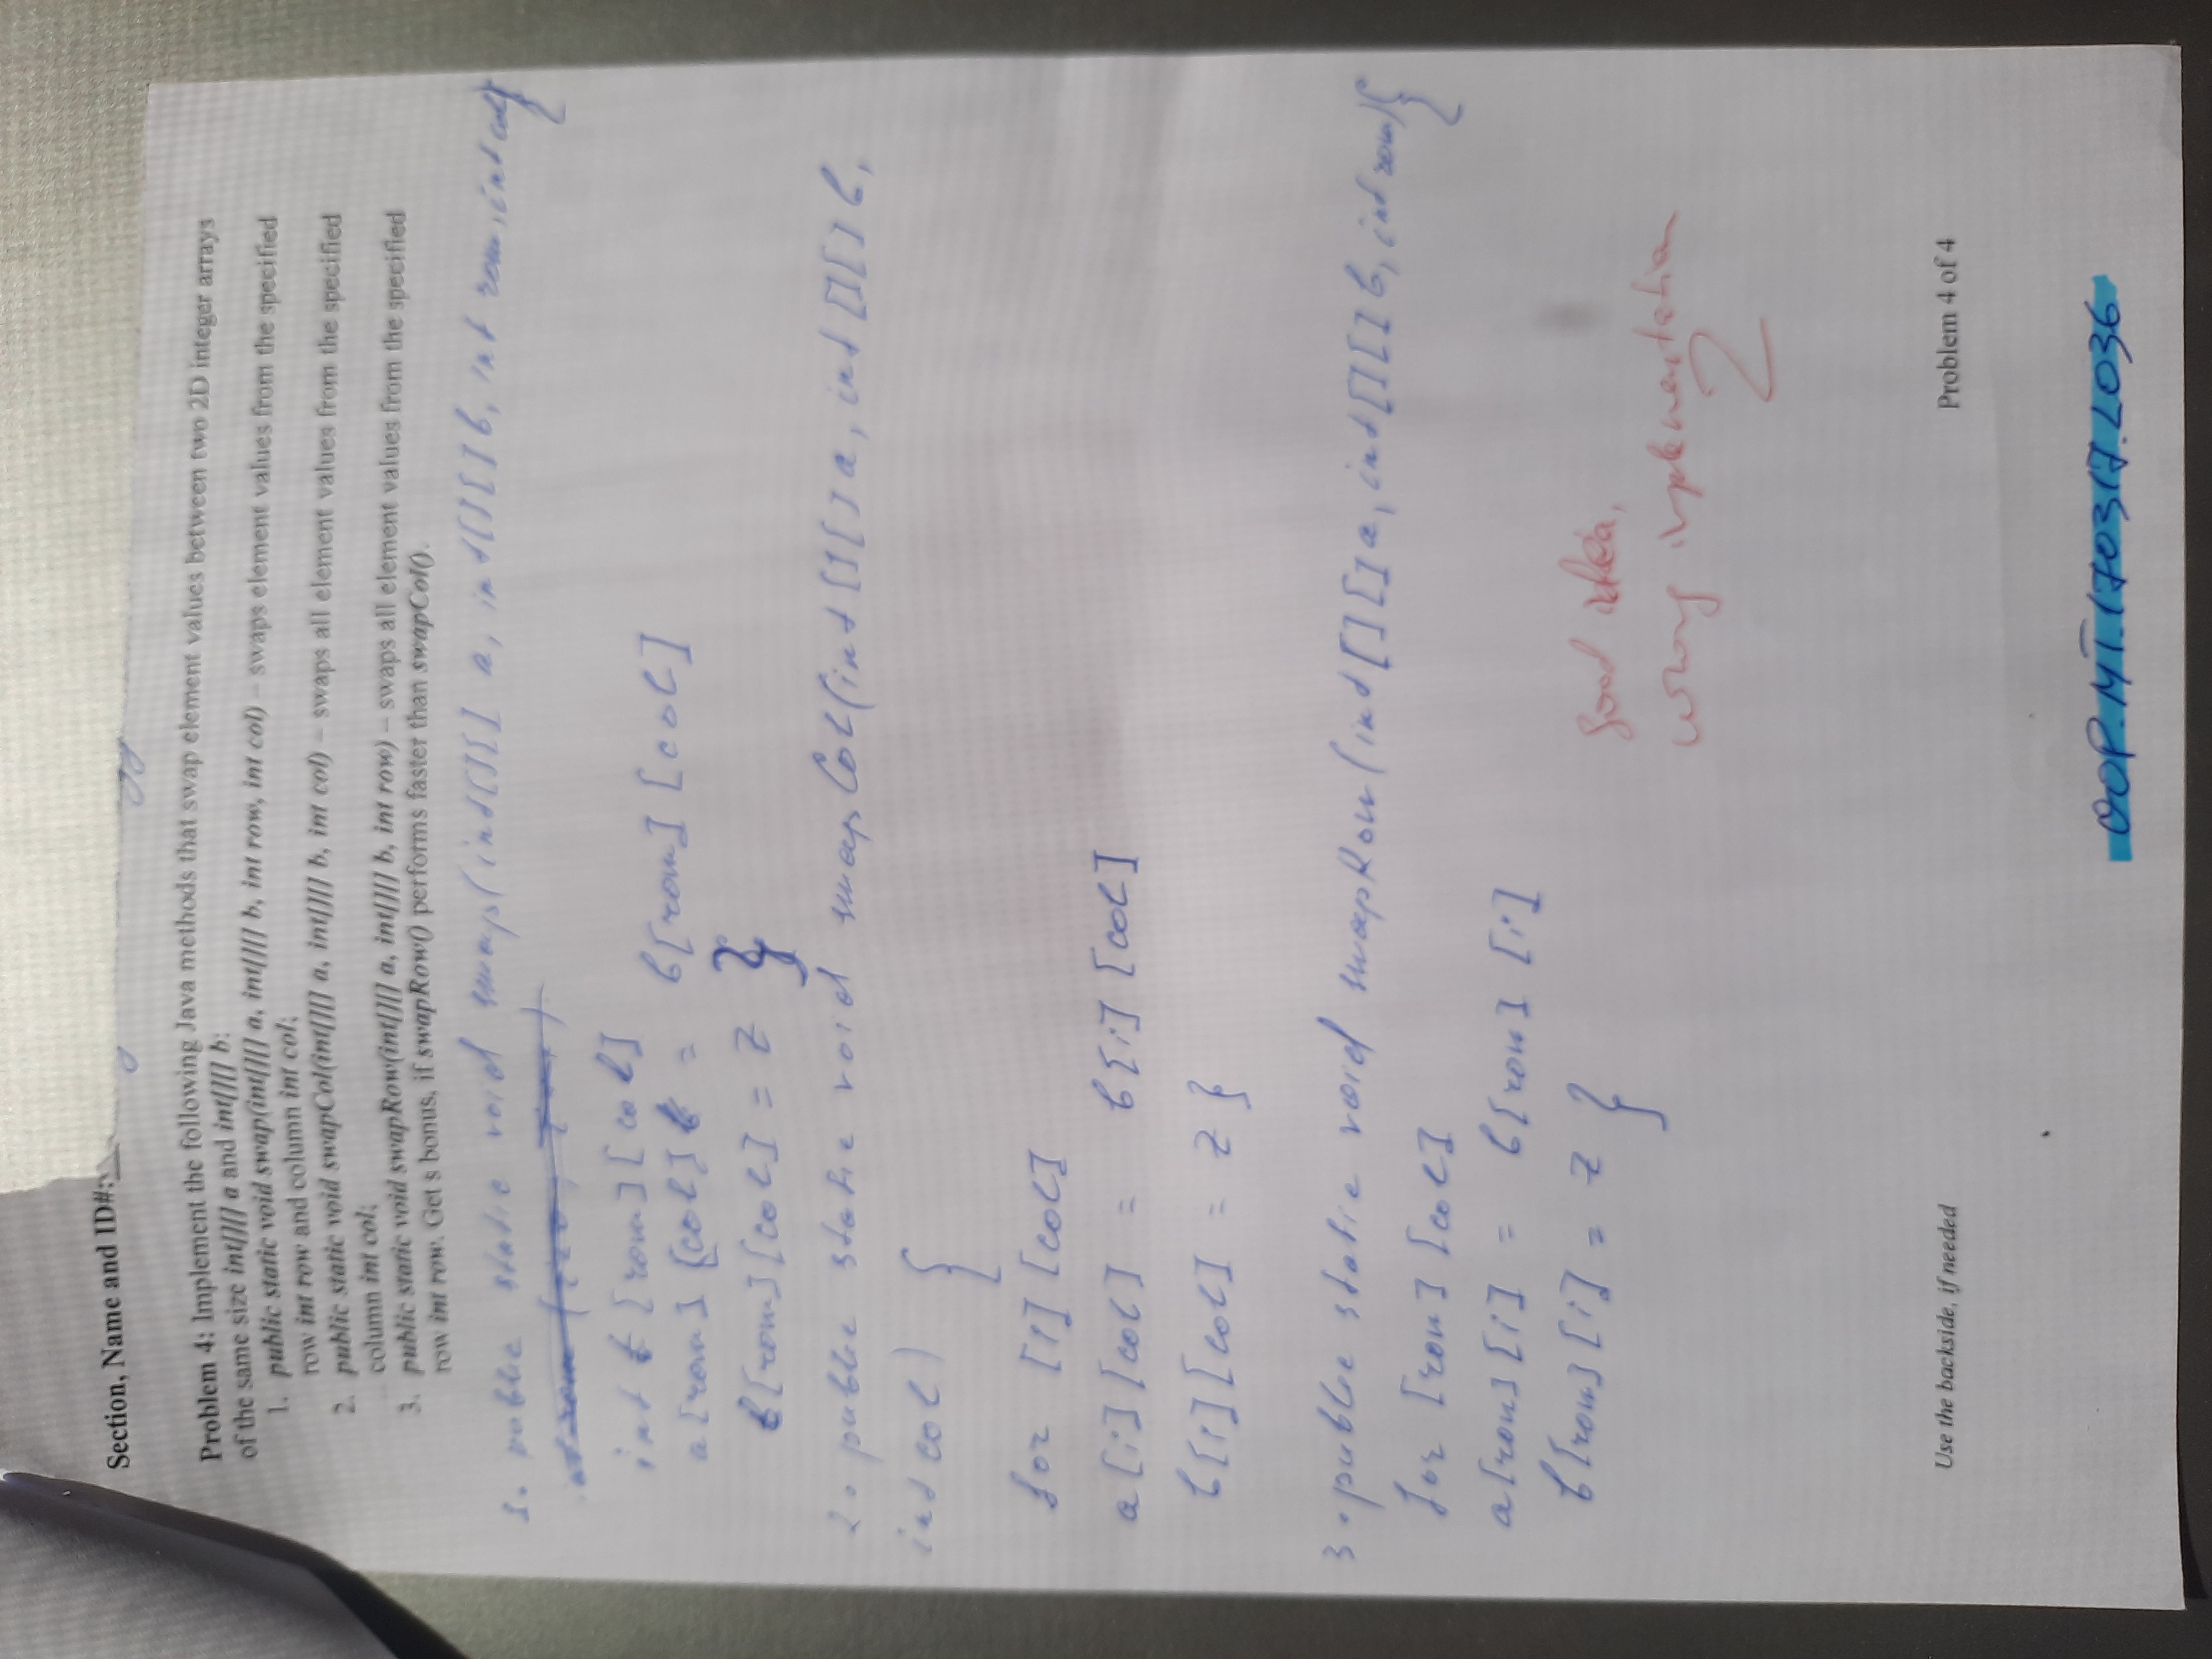 Section, Name and ID#:
Problem 4: Implement the following Java methods that swap element values between two 2D integer arrays
of the same size int[][] a and int[][] b:
1. public static void swap(int[][] a, int[][] b, int row, int col) – swaps element values from the specified
row int row and column int col;
2. public static void swapCol(int[][] a, int[][] b, int col) – swaps all element values from the specified
column int col;
3. public static void swapRow(int[][] a, int[][] b, int row) – swaps all element values from the specified
row int row. Get s bonus, if swapRow() performs faster than swapCol().
1. public static void swap(int[][] a, int[][] b, int row, int col){
int t [row][col]
a[row][col] = b[row][col]
b[row][col] = z }
2. public static void swapCol(int[][] a, int[][] b,
int col) {
for [i][col]
a[i][col] = b[i][col]
b[i][col] = z }
3. public static void swapRow(int[][] a, int[][] b, int row){
for [row][col]
a[row][i] = b[row][i]
b[row][i] = z }
good idea,
wrong implementation
2
Use the backside, if needed
Problem 4 of 4
OOP.MT.170317.L036